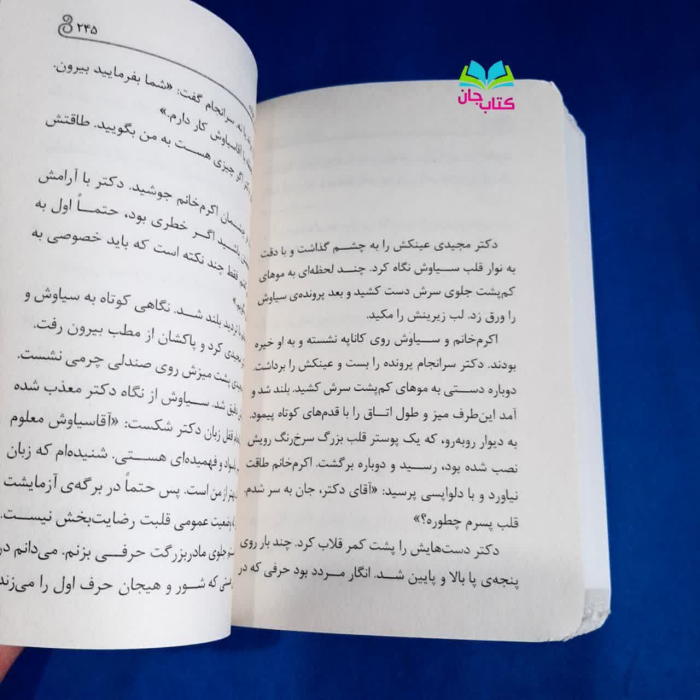 کتاب جان
دکتر مجیدی عینکش را به چشم گذاشت و با دقت
به نوار قلب سیاوش نگاه کرد. چند لحظه‌ای به موهای
کم‌پشت جلوی سرش دست کشید و بعد پرونده‌ی سیاوش
را ورق زد. لب زیرینش را مکید.
اکرم‌خانم و سیاوش روی کاناپه نشسته و به او خیره
بودند. دکتر سرانجام پرونده را بست و عینکش را برداشت.
دوباره دستی به موهای کم‌پشت سرش کشید. بلند شد و
آمد این‌طرف میز و طول اتاق را با قدم‌های کوتاه پیمود.
به دیوار روبه‌رو، که یک پوستر قلب بزرگ سرخ‌رنگ رویش
نصب شده بود، رسید و دوباره برگشت. اکرم‌خانم طاقت
نیاورد و با دلواپسی پرسید: «آقای دکتر، جان به سر شدم.
قلب پسرم چطوره؟»
دکتر دست‌هایش را پشت کمر قلاب کرد. چند بار روی
پنجه‌ی پا بالا و پایین شد. انگار مردد بود حرفی که در
۲۴۵
نه سرانجام گفت: «شما بفرمایید بیرون.
آقاسیاوش کار دارم.»
اگر چیزی هست به من بگویید. طاقتش
اکرم‌خانم جوشید. دکتر با آرامش
اگر خطری بود، حتماً اول به
فقط چند نکته است که باید خصوصی به
تردید بلند شد. نگاهی کوتاه به سیاوش و
مجیدی کرد و پاکشان از مطب بیرون رفت.
پشت میزش روی صندلی چرمی نشست.
دقیق شد. سیاوش از نگاه دکتر معذب شده
قفل زبان دکتر شکست: «آقاسیاوش معلوم
باسواد و فهمیده‌ای هستی. شنیده‌ام که زبان
بهتر از من است. پس حتماً در برگه‌ی آزمایشت
وضعیت عمومی قلبت رضایت‌بخش نیست.
جلوی مادربزرگت حرفی بزنم. می‌دانم در
که شور و هیجان حرف اول را می‌زند